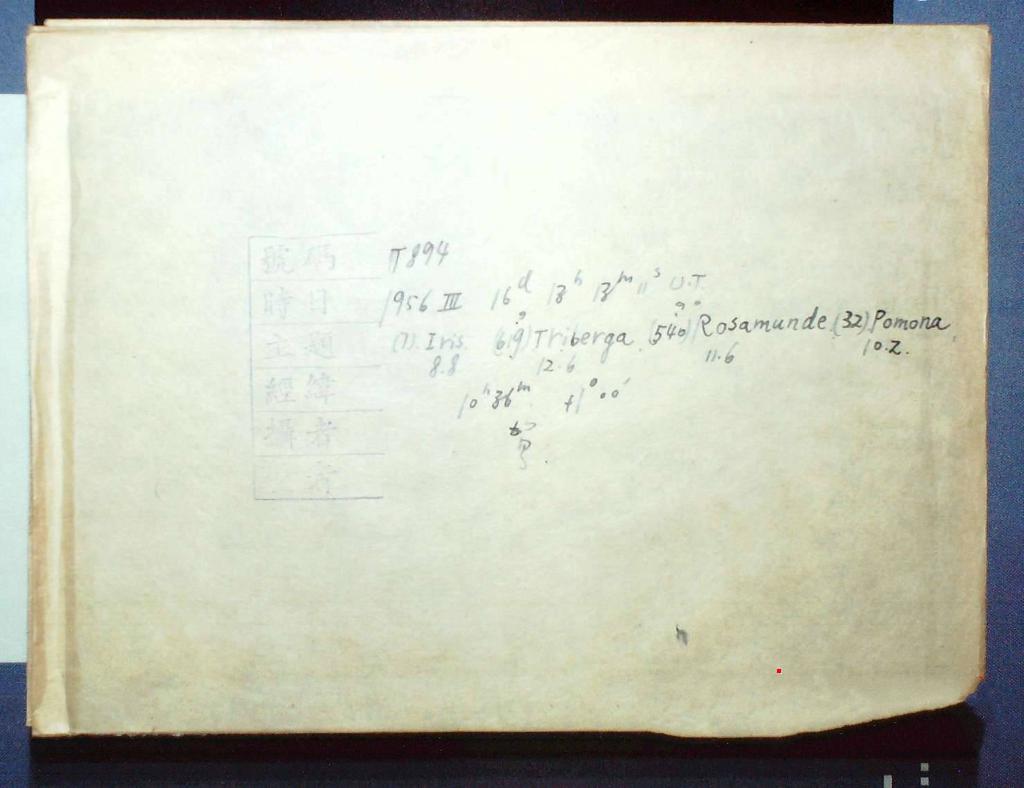 號碼 T894
時日 1956 III 16d 13h 13m 11s U.T.
主題 (7). Iris (619) Triberga (540) Rosamunde (32) Pomona
8.8 12.6 11.6 10.2.
經緯 10h 36m +1° 00'
攝者
者